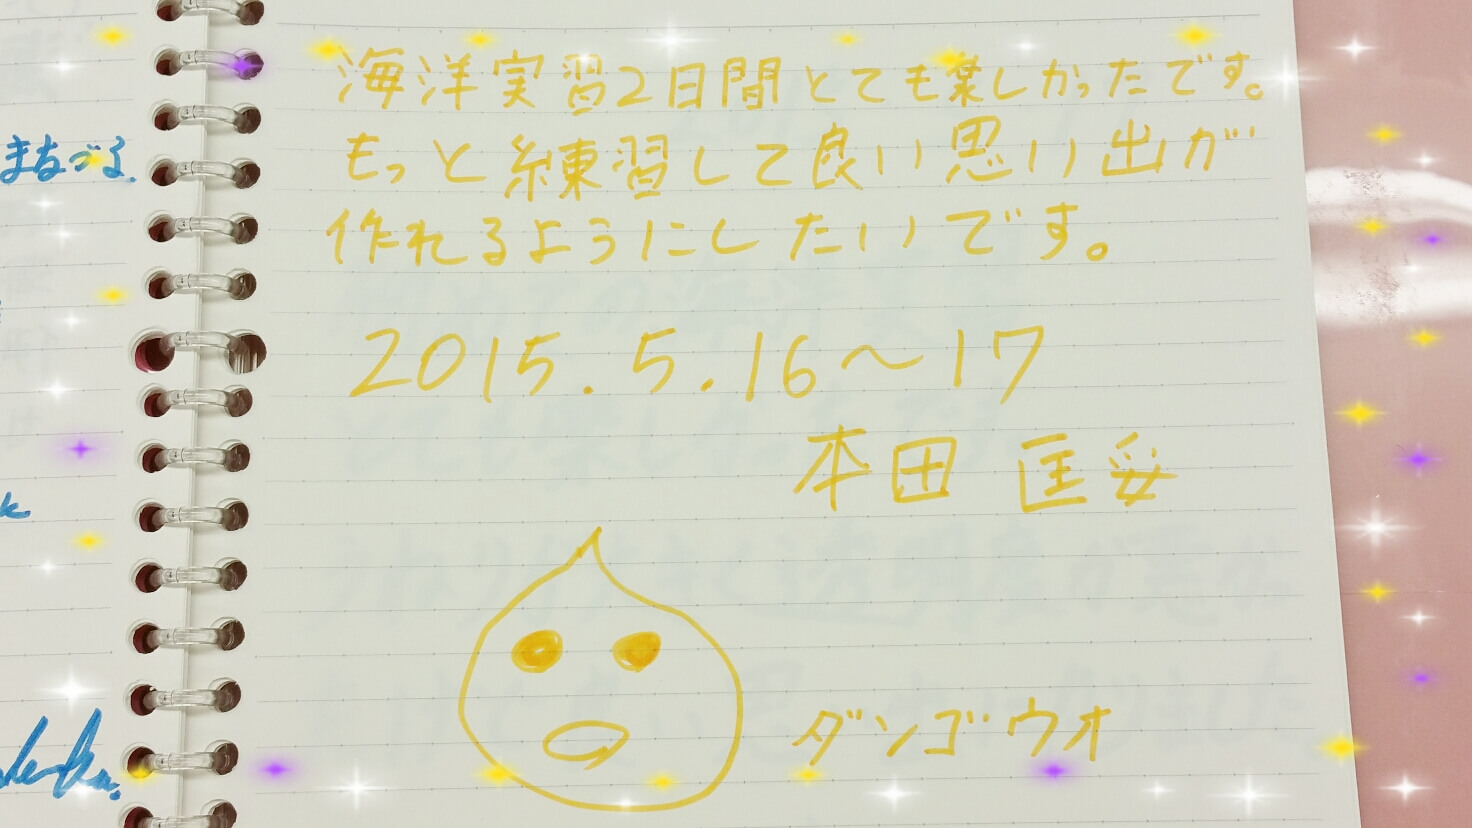 海洋実習2日間とても楽しかったです。
もっと練習して良い思い出が
作れるようにしたいです。
2015.5.16～17
本田 匡妥
ダンゴウオ
まなづる.